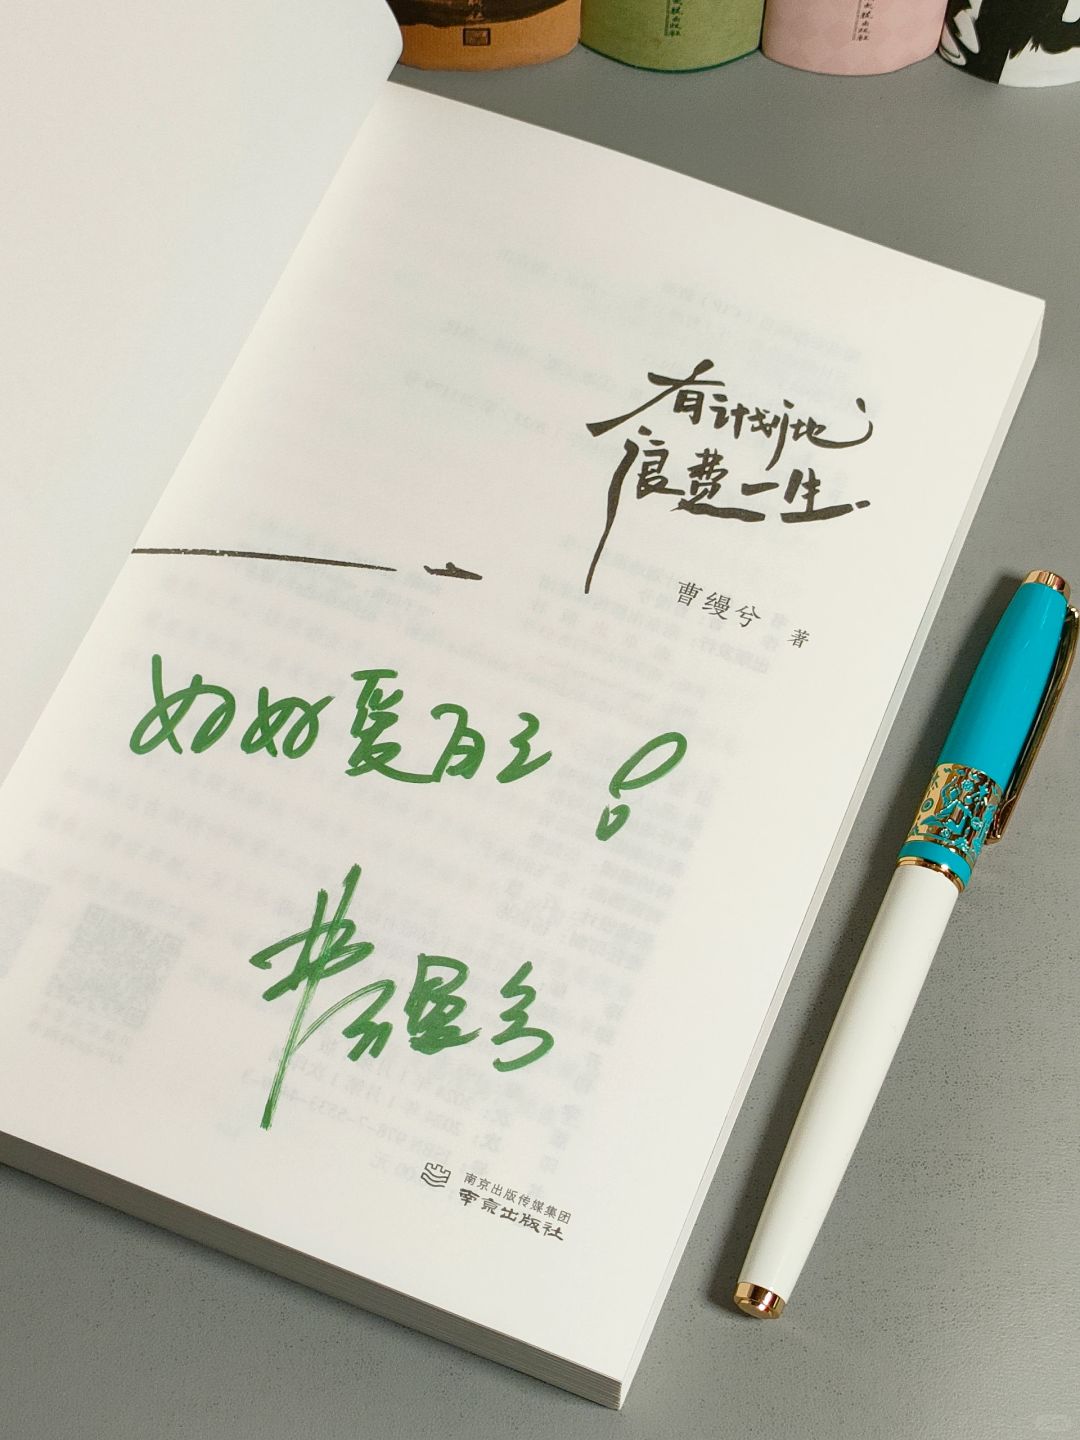 有计划地
浪费一生
曹缦兮 著
好好爱自己!
曹缦兮
南京出版传媒集团
南京出版社